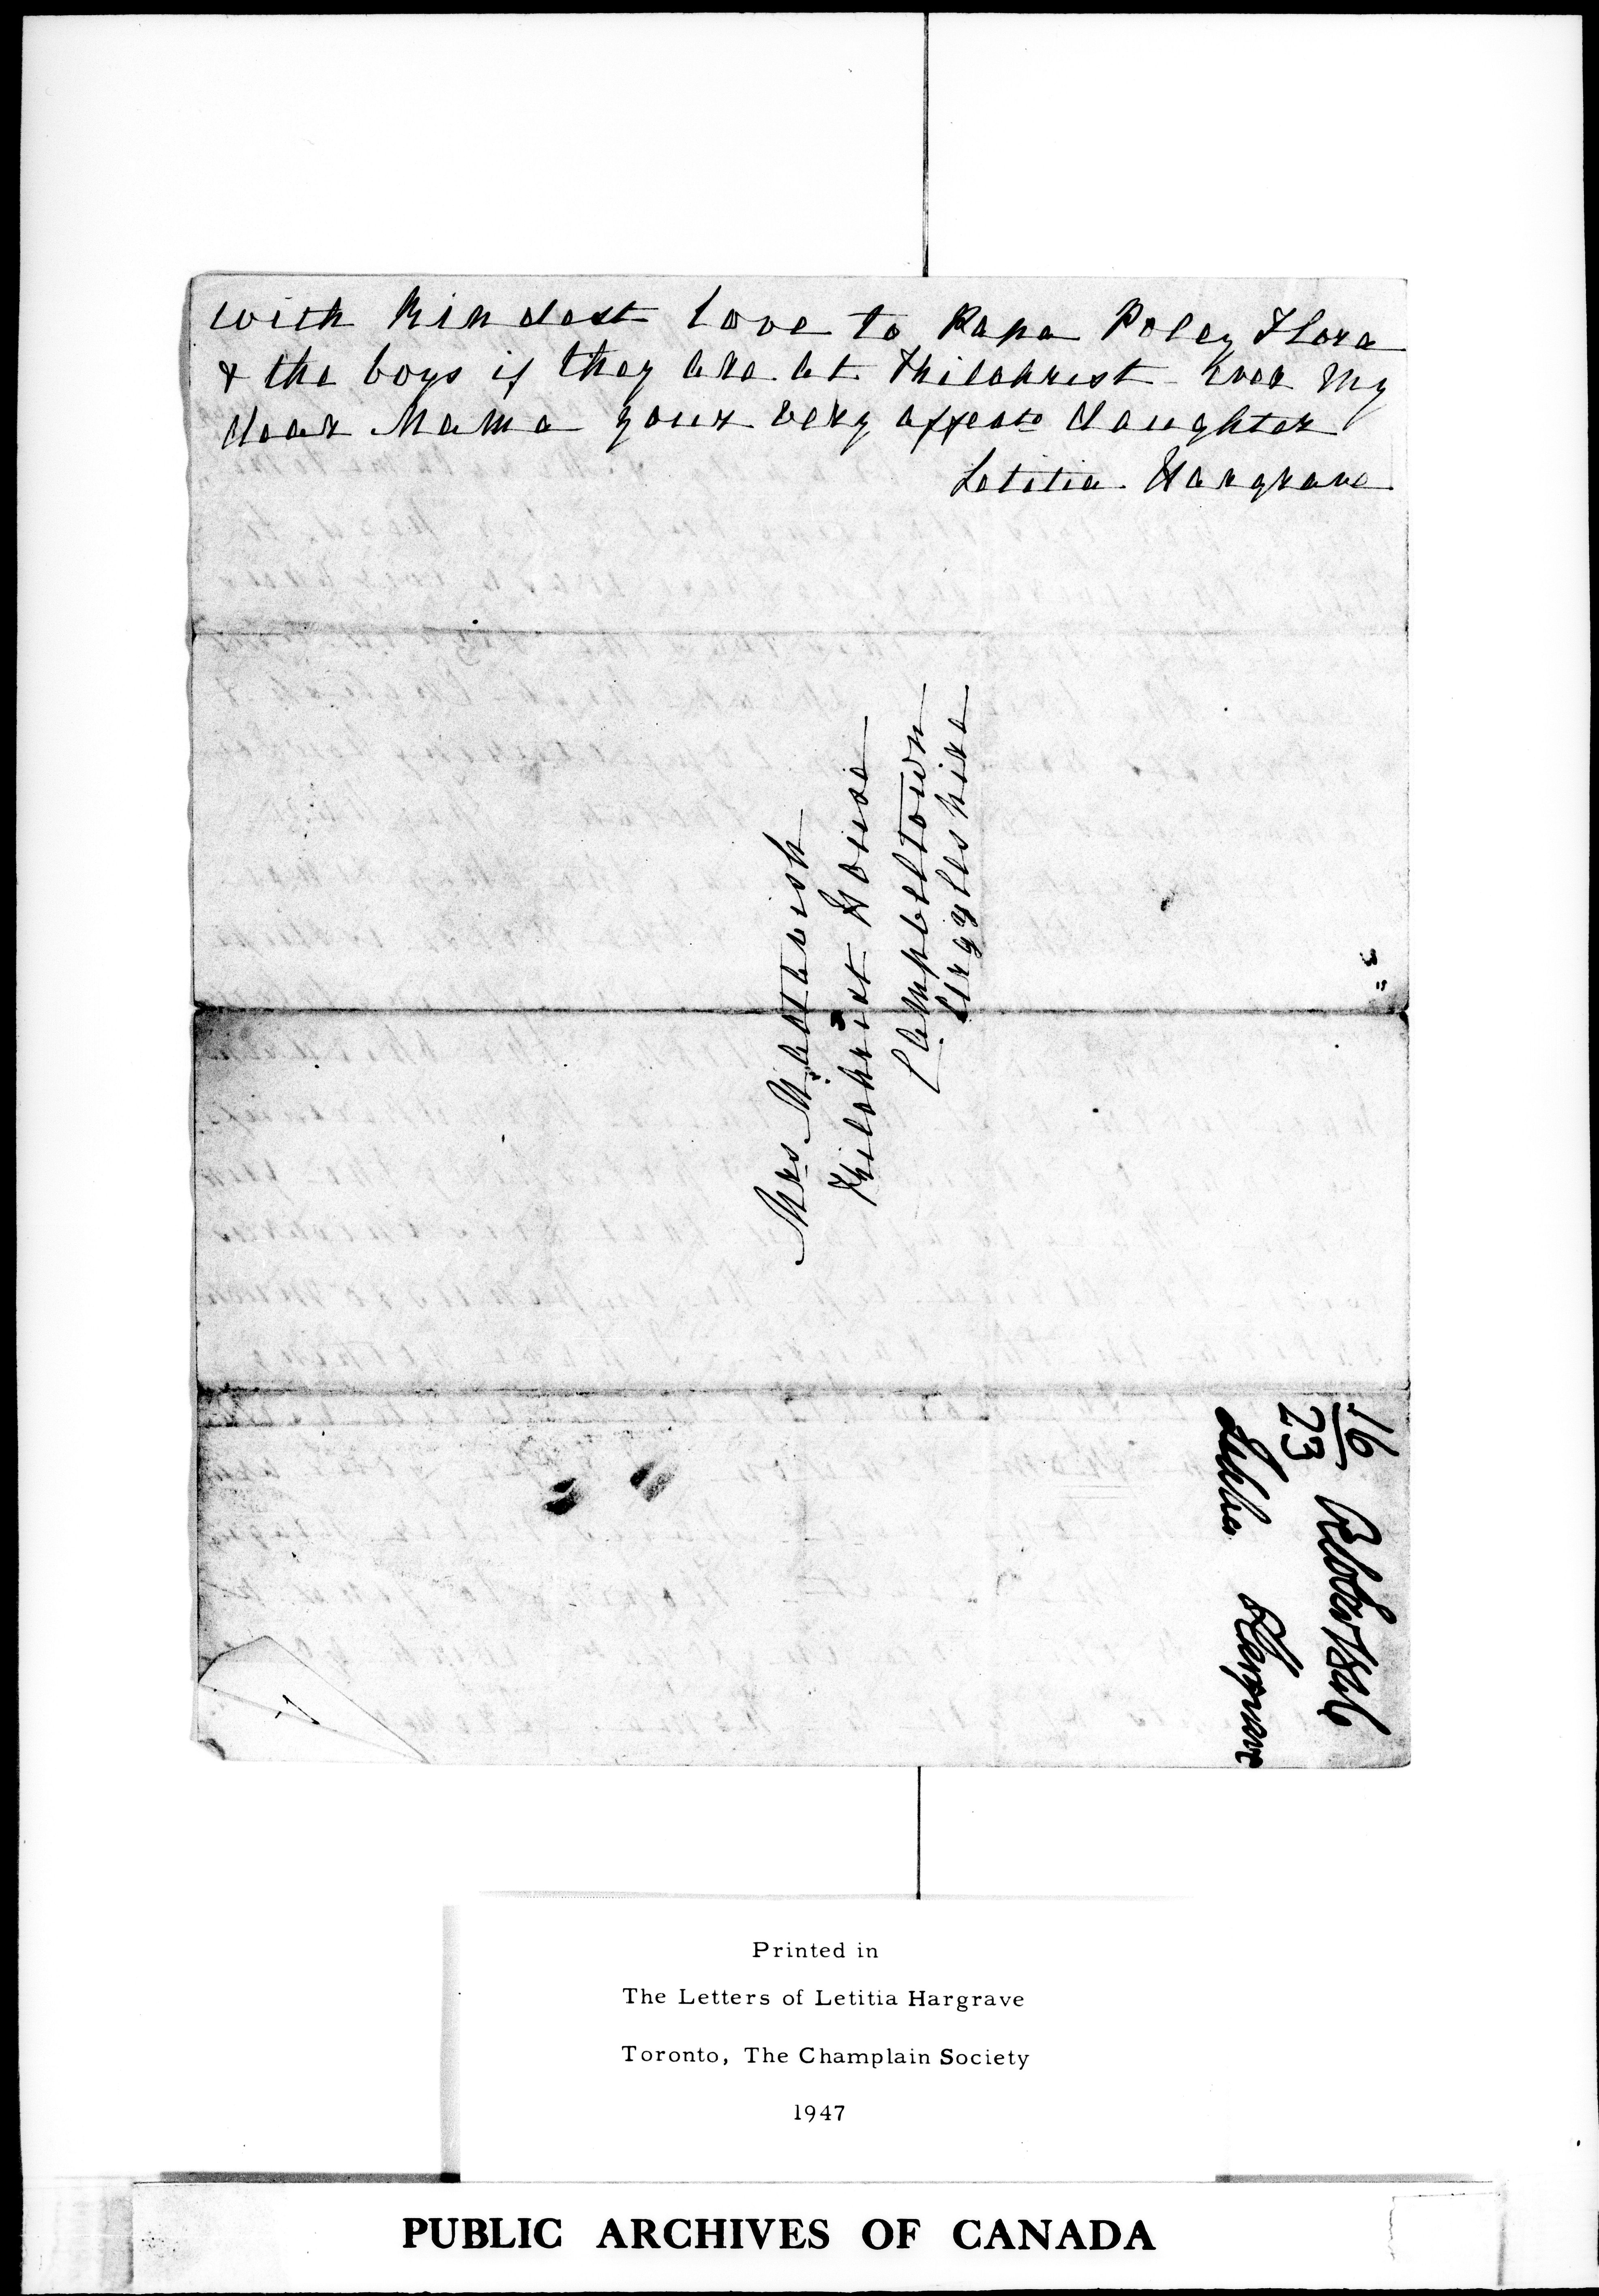 with kindest love to Papa Polly Flora
& the boys if they are at Kilchrist Ever my
dear Mama your very affecte daughter
Letitia Hargrave
Mrs Mactavish
Kilchrist House
Campbeltown
Argyleshire
16
23
Hargrave
Printed in
The Letters of Letitia Hargrave
Toronto, The Champlain Society
1947
PUBLIC ARCHIVES OF CANADA